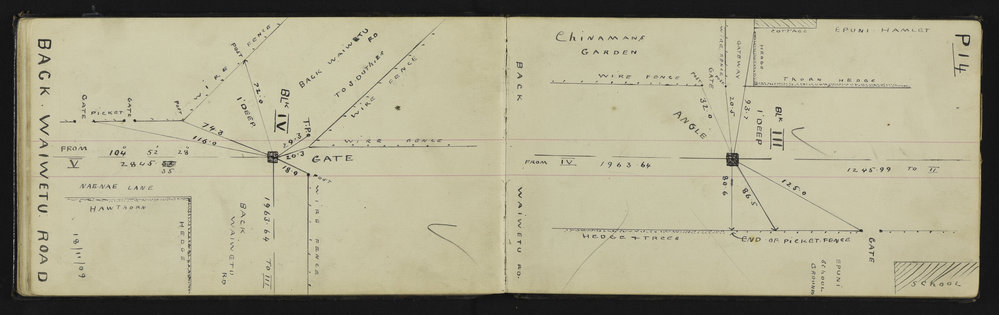 BACK. WAIWETU. ROAD
GATE
PICKET
GATE
POST
WIRE
POST
FENCE
72.0
1' DEEP
BLK IV
BACK WAIWETU RD
TO G DUTHIES
WIRE FENCE
74.3
116.0
T.P.
29.3
20.3
18.9
WIRE FENCE
GATE
POST
FROM V
104 52 28
2845
35
NAENAE LANE
HAWTHORN
HEDGE
18/11/09
BACK WAIWETU RD
1963.64 TO III
WIRE FENCE
P14
BACK WAIWETU RD.
Chinamans
GARDEN
WIRE FENCE
POST
GATE
WIRE FENCE
GATEWAY
HEDGE
COTTAGE
EPUNI. HAMLET
THORN HEDGE
32.0
20.5
93.7
1' DEEP
BLK III
ANGLE
FROM IV. 1963.64
1245.99 TO II.
80.6
86.5
125.0
HEDGE & TREES
END OF PICKET FENCE
GATE
EPUNI
SCHOOL
GROUND
SCHOOL